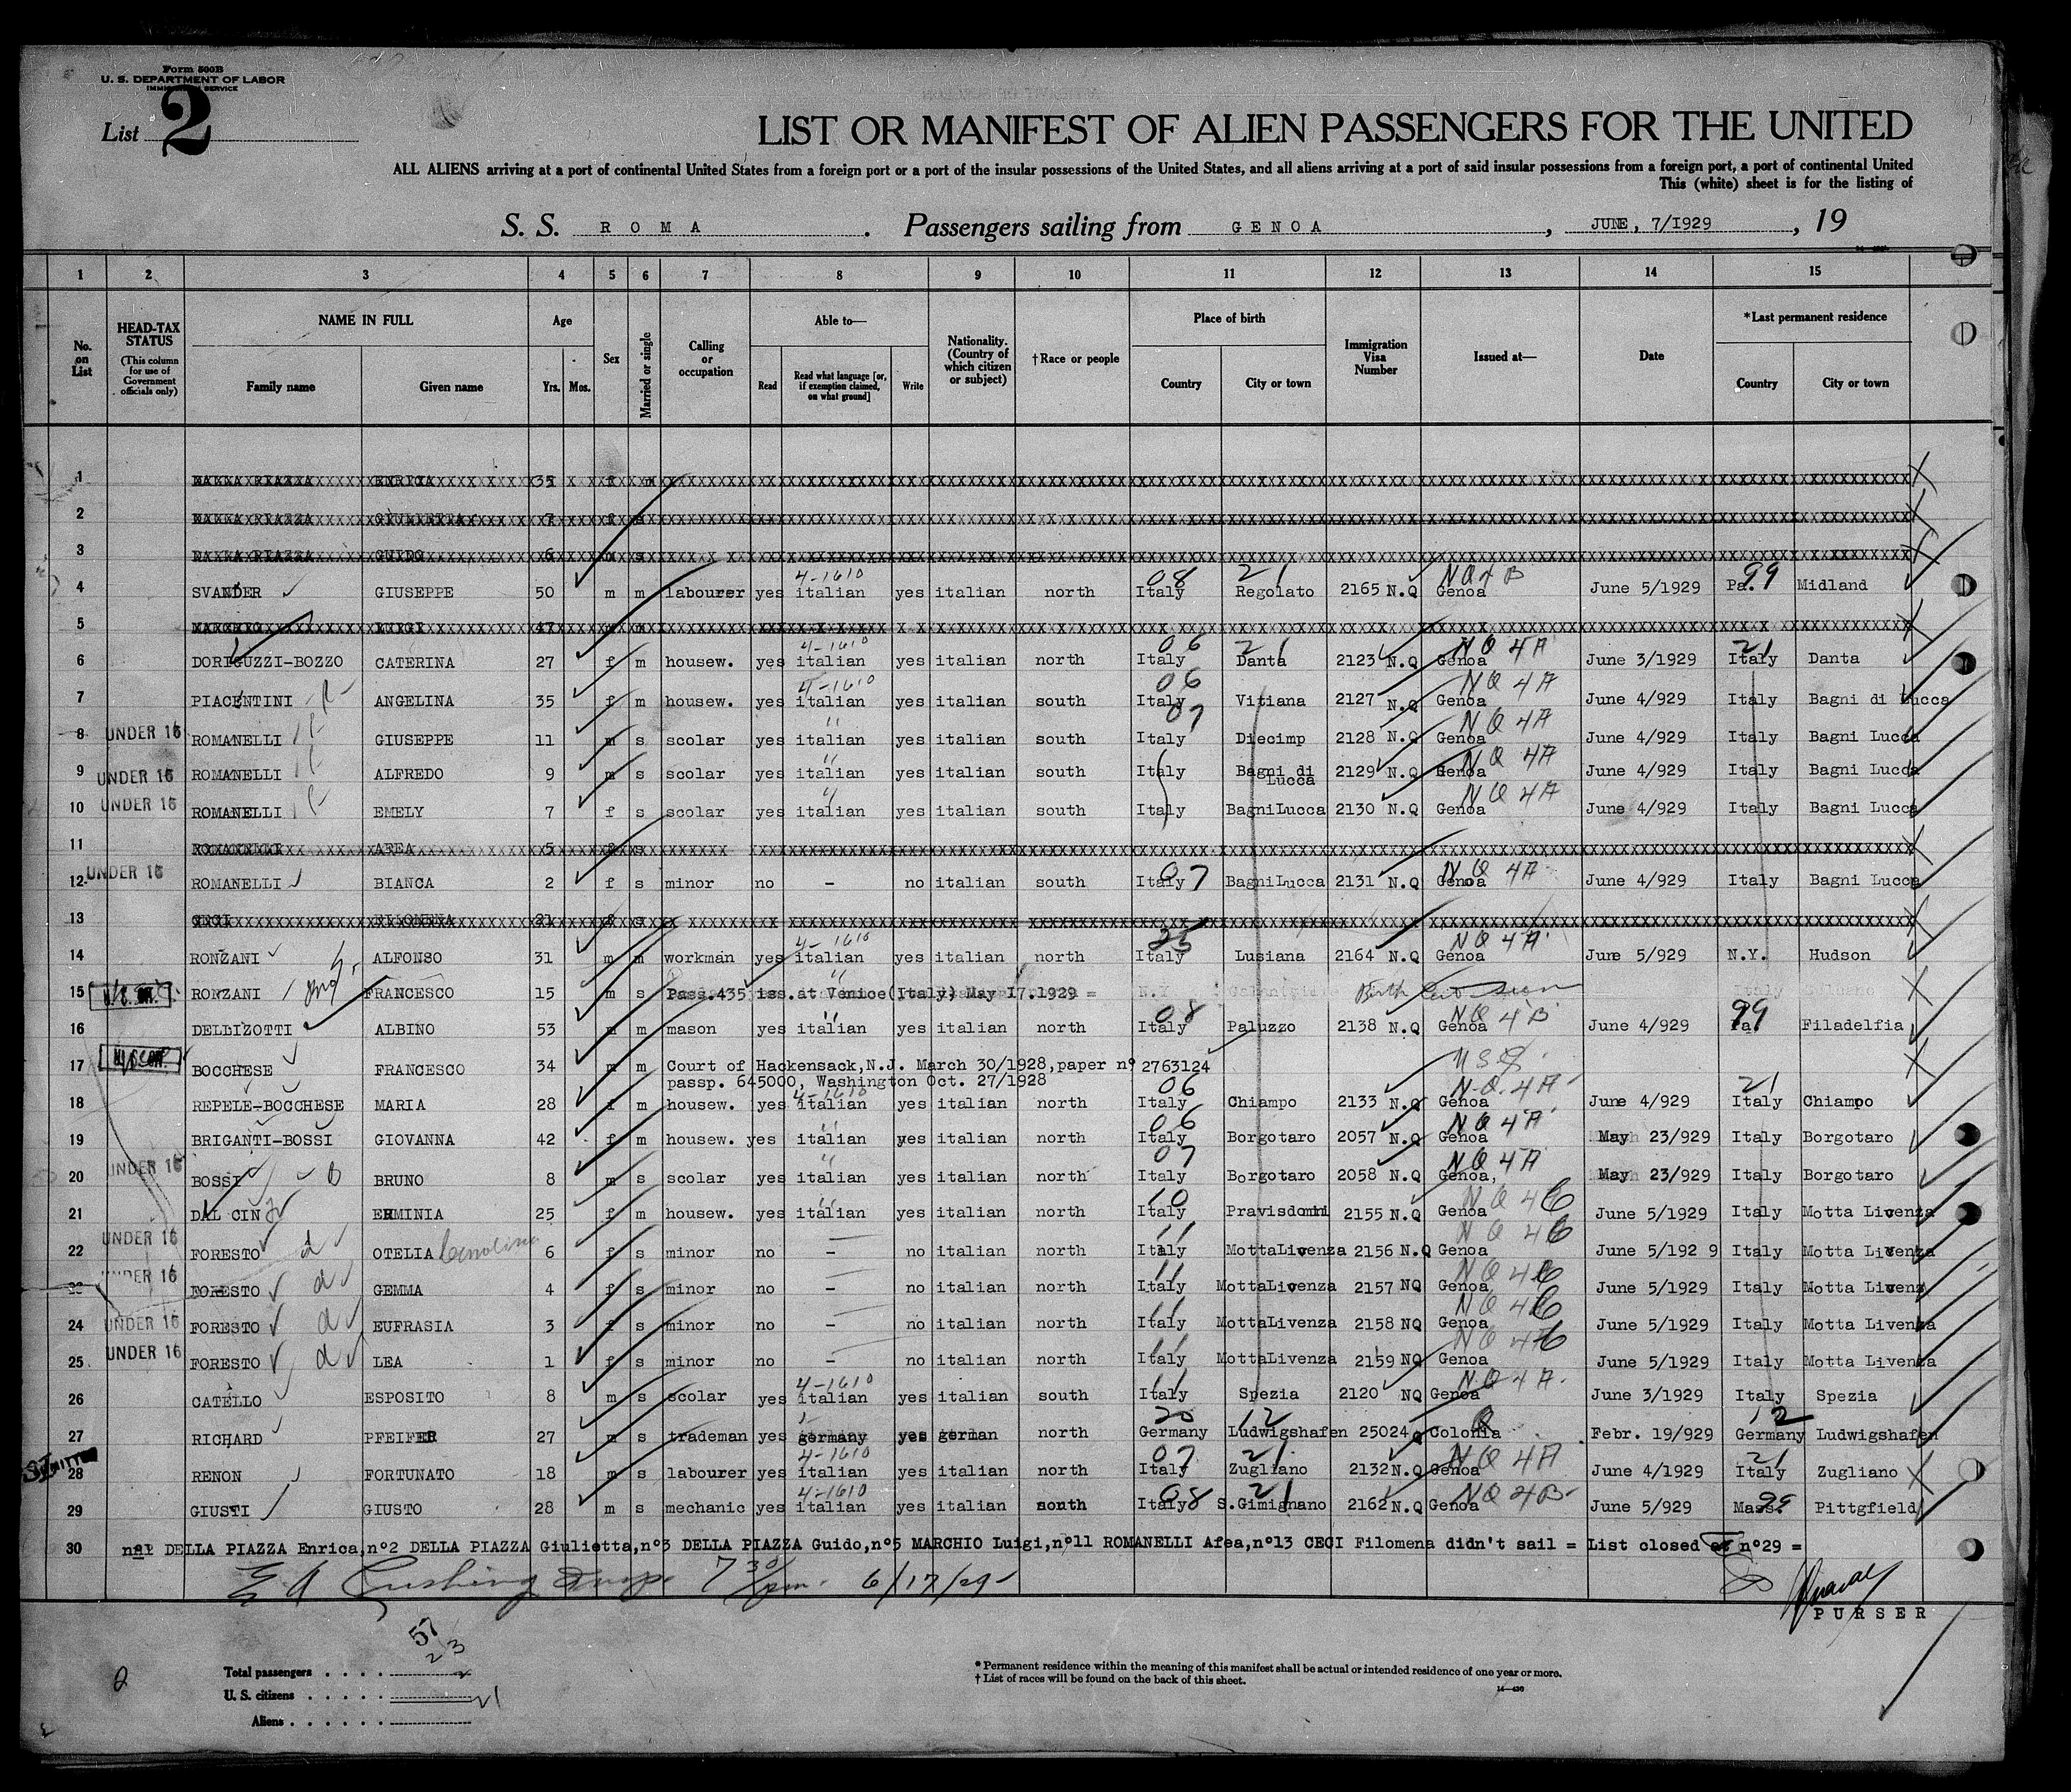 Form 500B
U. S. DEPARTMENT OF LABOR
IMMIGRATION SERVICE
List 2
LIST OR MANIFEST OF ALIEN PASSENGERS FOR THE UNITED
ALL ALIENS arriving at a port of continental United States from a foreign port or a port of the insular possessions of the United States, and all aliens arriving at a port of said insular possessions from a foreign port, a port of continental United
This (white) sheet is for the listing of
S. S. ROMA. Passengers sailing from GENOA, JUNE, 7/1929, 19
1 2 3 4 5 6 7 8 9 10 11 12 13 14 15
No. on List HEAD-TAX STATUS (This column for use of Government officials only) NAME IN FULL Family name Given name Age Yrs. Mos. Sex Married or single Calling or occupation Able to— Read Read what language [or, if exemption claimed, on what ground] Write Nationality. (Country of which citizen or subject) †Race or people Place of birth Country City or town Immigration Visa Number Issued at— Date *Last permanent residence Country City or town
1 ENRICA 35 f m
2 GIULIETTA 7 f s
3 GUIDO 6 m s
4 SVANDER GIUSEPPE 50 m m labourer yes 4-1610 italian yes italian north 08 Italy 21 Regolato 2165 N.Q NQ4B Genoa June 5/1929 Pa. 99 Midland
5 MARCHIO LUIGI 47 m m
6 DORIGUZZI-BOZZO CATERINA 27 f m housew. yes 4-1610 italian yes italian north 06 Italy 21 Danta 2123 N.Q NQ 4A Genoa June 3/1929 21 Italy Danta
7 PIACENTINI ANGELINA 35 f m housew. yes 4-1610 italian yes italian south 06 Italy Vitiana 2127 N.Q NQ 4A Genoa June 4/929 Italy Bagni di Lucca
8 UNDER 16 ROMANELLI GIUSEPPE 11 m s scolar yes " italian yes italian south 07 Italy Diecimp 2128 N.Q NQ 4A Genoa June 4/929 Italy Bagni Lucca
9 UNDER 16 ROMANELLI ALFREDO 9 m s scolar yes " italian yes italian south Italy Bagni di Lucca 2129 N.Q NQ 4A Genoa June 4/929 Italy Bagni Lucca
10 UNDER 16 ROMANELLI EMELY 7 f s scolar yes " italian yes italian south Italy BagniLucca 2130 N.Q NQ 4A Genoa June 4/929 Italy Bagni Lucca
11 ROMANELLI AFEA 5 f s
12 UNDER 16 ROMANELLI BIANCA 2 f s minor no - no italian south Italy 07 BagniLucca 2131 N.Q NQ 4A Genoa June 4/929 Italy Bagni Lucca
13 CECI FILOMENA 21 f s
14 RONZANI ALFONSO 31 m m workman yes 4-1610 italian yes italian north Italy Lusiana 2164 N.Q NQ 4A Genoa June 5/929 N.Y. Hudson
15 RONZANI FRANCESCO 15 m s Pass.435 iss.at Venice(Italy) May I7.1929 = Birth
16 DELLIZOTTI ALBINO 53 m m mason yes " italian yes italian north 08 Italy Paluzzo 2138 N.Q NQ 4B Genoa June 4/929 Pa. 99 Filadelfia
17 BOCCHESE FRANCESCO 34 m m Court of Hackensack,N.J. March 30/1928,paper nº 2763124
passp. 645000, Washington Oct. 27/1928
18 REPELE-BOCCHESE MARIA 28 f m housew. yes 4-1610 italian yes italian north 06 Italy Chiampo 2133 N.Q N.Q. 4A Genoa June 4/929 21 Italy Chiampo
19 BRIGANTI-BOSSI GIOVANNA 42 f m housew. yes " italian yes italian north 06 Italy Borgotaro 2057 N.Q NQ 4A Genoa May 23/929 Italy Borgotaro
20 UNDER 16 BOSSI BRUNO 8 m s scolar yes " italian yes italian north 07 Italy Borgotaro 2058 N.Q NQ 4A Genoa, May 23/929 Italy Borgotaro
21 DAL CIN ERMINIA 25 f m housew. yes " italian yes italian north 10 Italy Pravisdomini 2155 N.Q NQ 4C Genoa June 5/1929 Italy Motta Livenza
22 UNDER 16 FORESTO OTELIA 6 f s minor no - no italian north 11 Italy MottaLivenza 2156 N.Q NQ 4C Genoa June 5/192 9 Italy Motta Livenza
23 UNDER 16 FORESTO GEMMA 4 f s minor no - no italian north 11 Italy MottaLivenza 2157 NQ NQ 4C Genoa June 5/1929 Italy Motta Livenz
24 UNDER 16 FORESTO EUFRASIA 3 f s minor no - no italian north 11 Italy MottaLivenza 2158 NQ NQ 4C Genoa June 5/1929 Italy Motta Livenza
25 UNDER 16 FORESTO LEA 1 f s minor no - no italian north 11 Italy MottaLivenza 2159 NQ NQ 4C Genoa June 5/1929 Italy Motta Livenza
26 CATELLO ESPOSITO 8 m s scolar yes 4-1610 italian yes italian south 11 Italy Spezia 2120 NQ NQ 4A Genoa June 3/1929 Italy Spezia
27 RICHARD PFEIFER 27 m s trademan yes germany yes german north 20 Germany 12 Ludwigshafen 25024 Q Colonia Febr. 19/929 12 Germany Ludwigshafen
28 RENON FORTUNATO 18 m s labourer yes 4-1610 italian yes italian north 07 Italy 21 Zugliano 2132 N.Q NQ 4A Genoa June 4/1929 21 Italy Zugliano
29 GIUSTI GIUSTO 28 m s mechanic yes 4-1610 italian yes italian south Italy 08 21 S.Gimignano 2162 N.Q NQ 4B Genoa June 5/929 Mass. 99 Pittgfield
30 DELLA PIAZZA Enrica,nº2 DELLA PIAZZA Giulietta,nº3 DELLA PIAZZA Guido,nº5 MARCHIO Luigi,nº11 ROMANELLI Afea,nº13 CECI Filomena didn't sail = List closed at nº29 =
E A Cushing Insp. 7 30/pm. 6/17/29
PURSER
57
23
2
2
Total passengers . . . .
U. S. citizens . . . . . 21
Aliens . . . . . .
* Permanent residence within the meaning of this manifest shall be actual or intended residence of one year or more.
† List of races will be found on the back of this sheet.
14—430